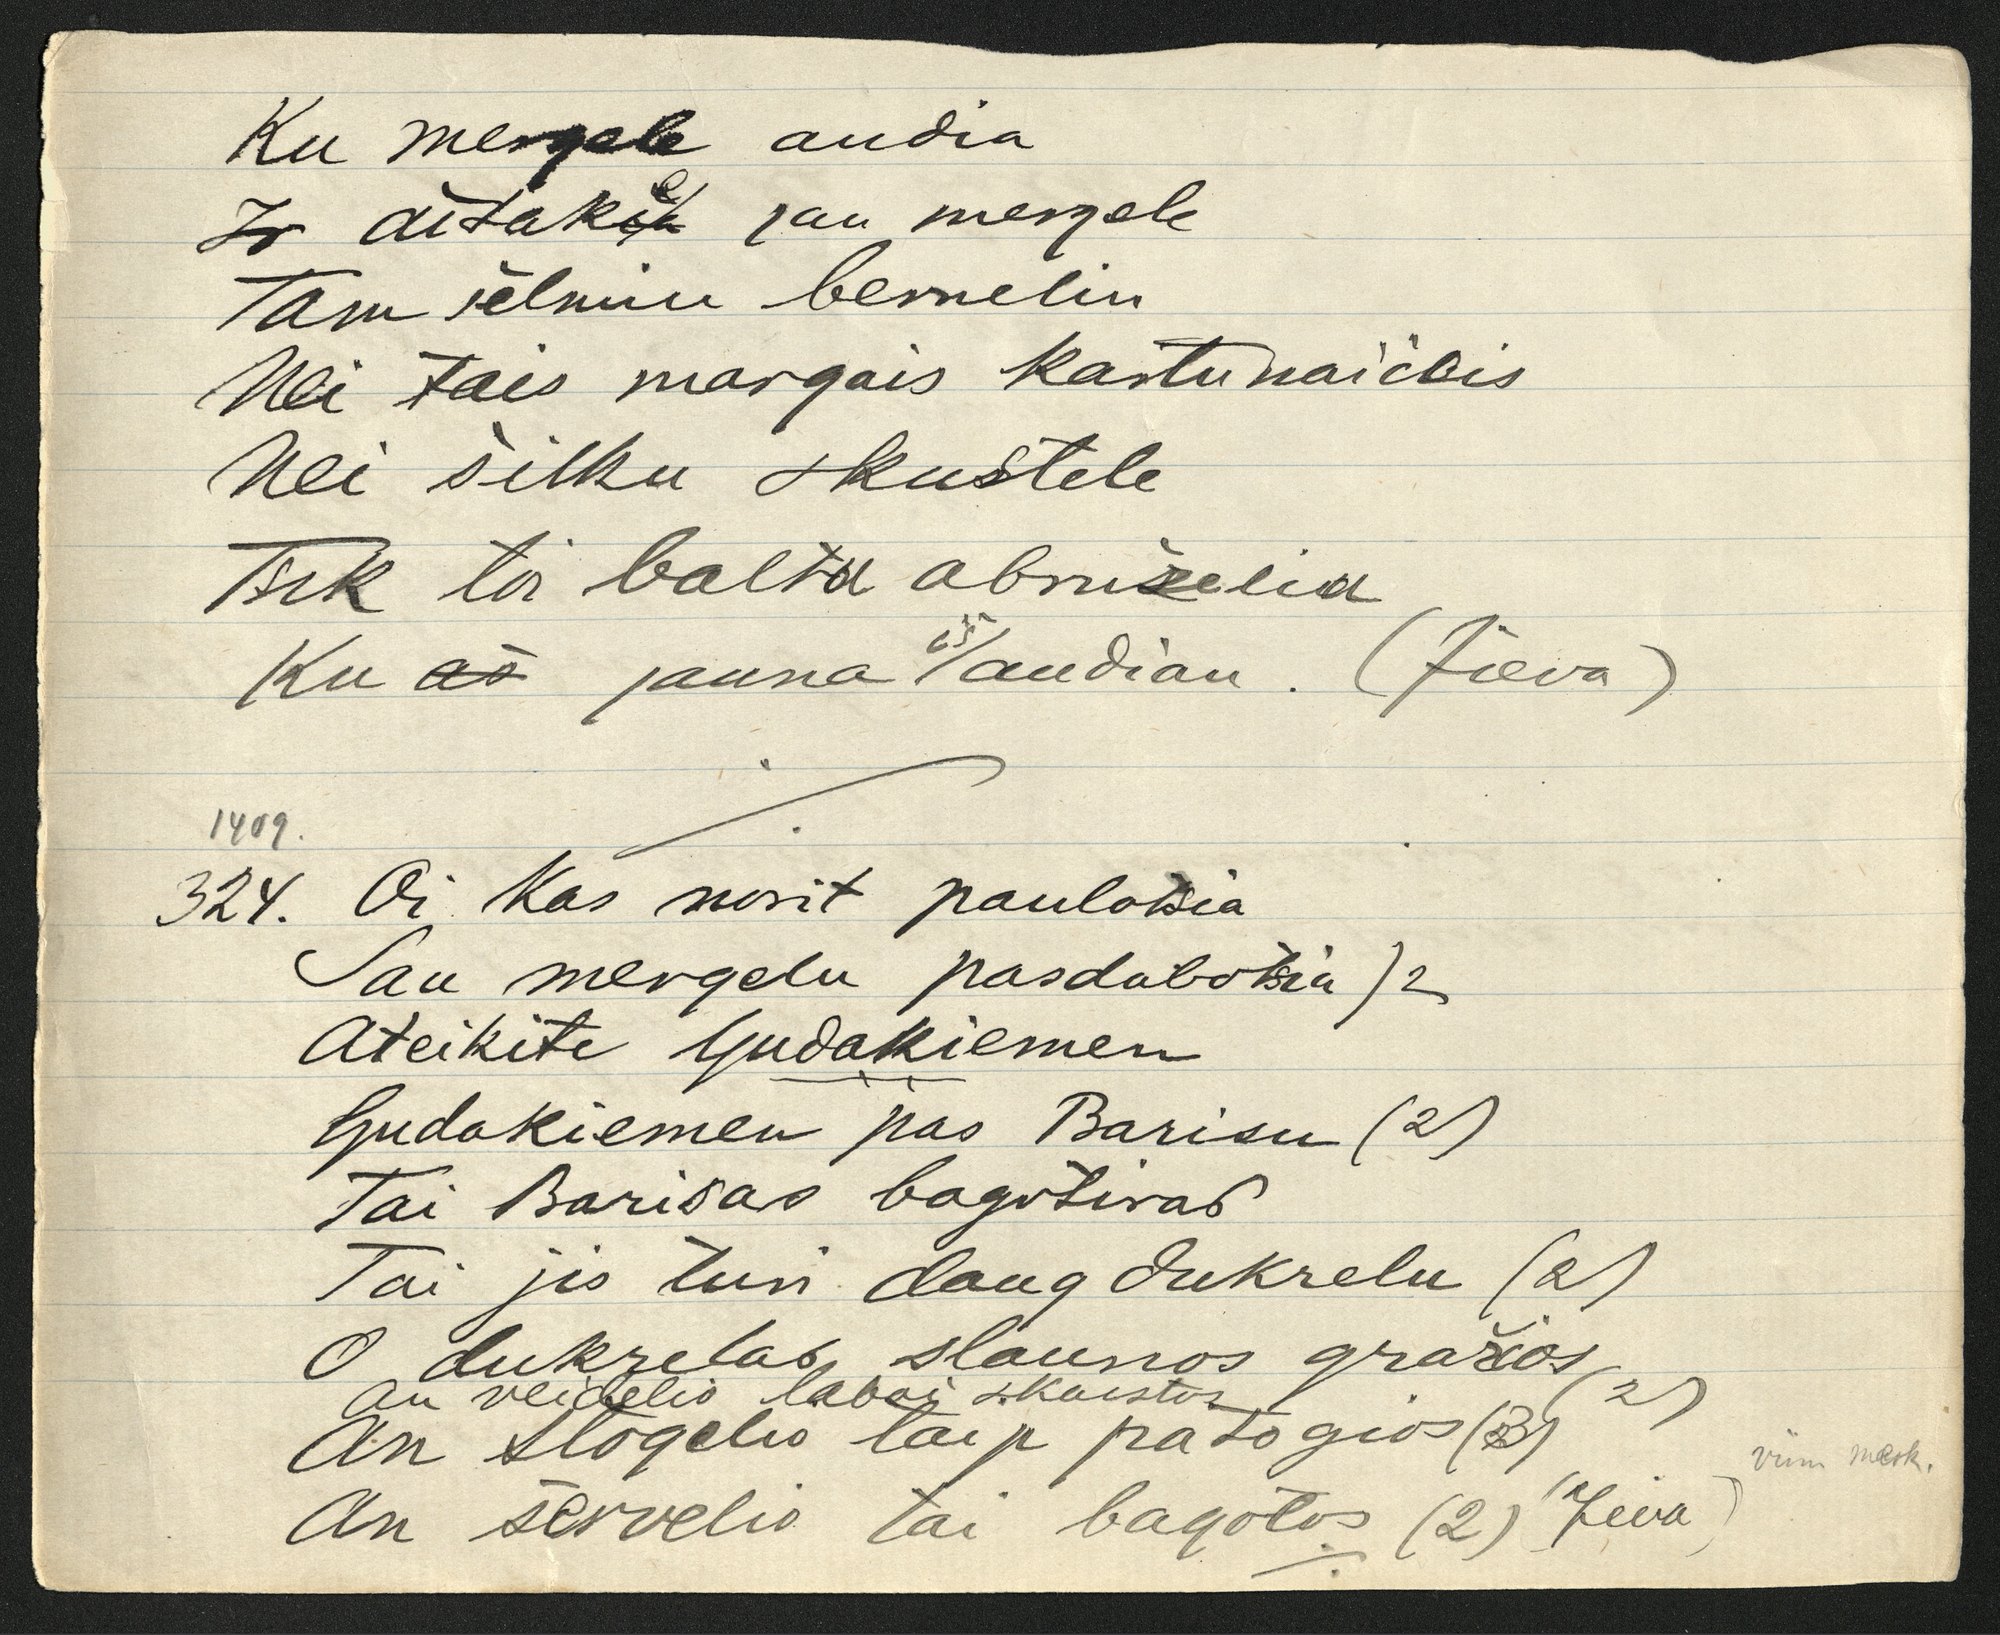 Ku mergele audia
Ir aitake jau mergele
Tam šelmiu bernelin
Nei tais margais kartunaičois
Nei šilku skustele
Tik toi balta abruselia
Ku aš jauna išaudiau. (Jieva)
1409.
324. Oi kas norit pauloťsia
Sau mergelu pasdaboťsia)2
Ateikite Gudakiemen
Gudakiemen pas Barisu (2)
Tai Barisas bagotiras
Tai jis turi daug dukrelu (2)
O dukrelas slaunos gražios
an veidelio labai skaistos (2)
An stogelio taip patogios (3)
viim mask.
An šervelio tai bagotos (2) (Jieva)